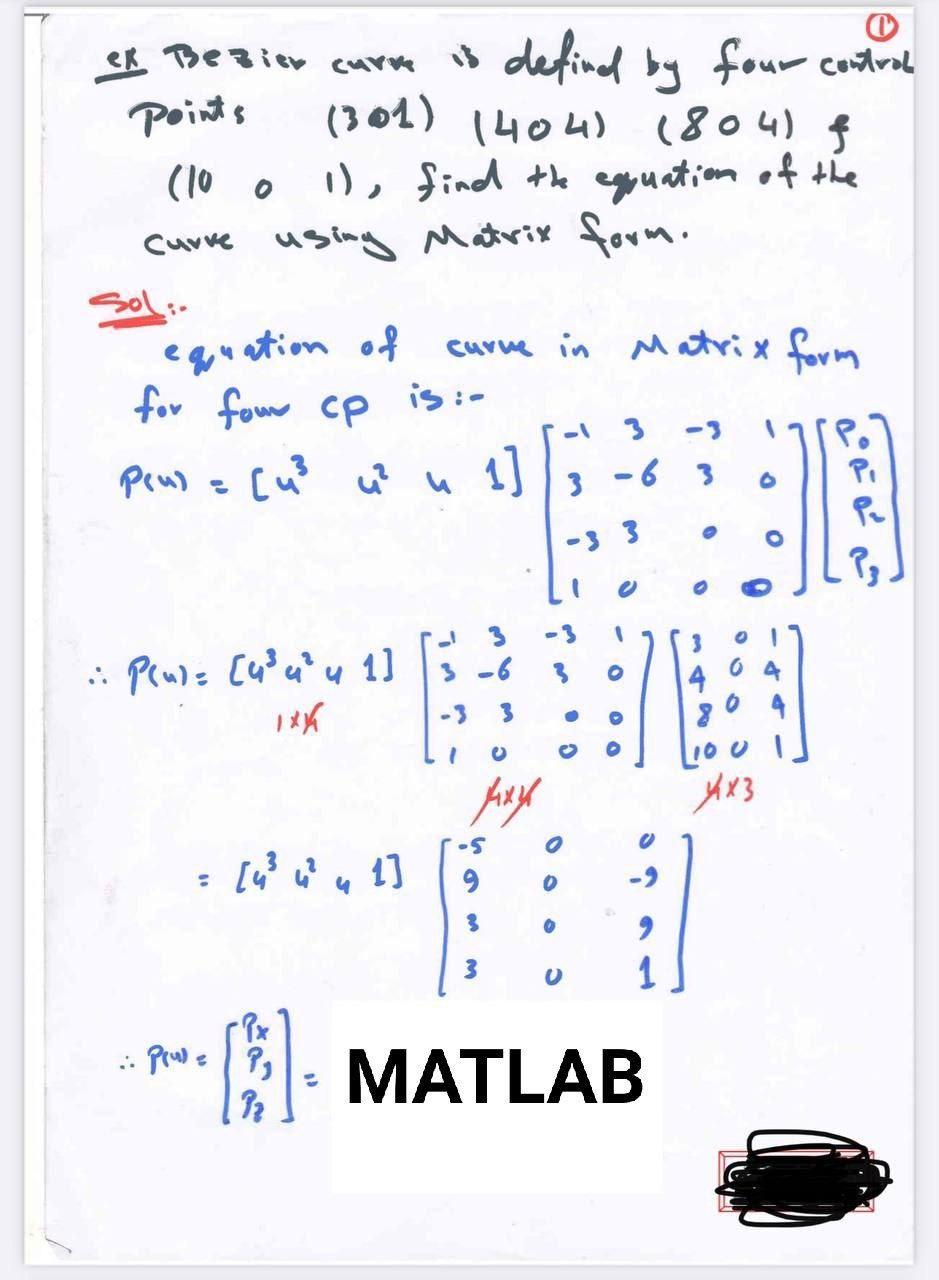 ①
ex Bezier curve is defind by four control
Points (3 0 1) (4 0 4) (8 0 4) &
(10 0 1), find the equation of the
curve using Matrix form.
Sol:-
equation of curve in Matrix form
for four cp is:-
P(u) = [u³ u² u 1] [-1 3 -3 1] [P₀]
[3 -6 3 0] [P₁]
[-3 3 0 0] [P₂]
[1 0 0 0] [P₃]
∴ P(u) = [u³ u² u 1] [-1 3 -3 1] [3 0 1]
[3 -6 3 0] [4 0 4]
[-3 3 0 0] [8 0 4]
[1 0 0 0] [10 0 1]
1×4 4×4 4×3
= [u³ u² u 1] [-5 0 0]
[9 0 -9]
[3 0 9]
[3 0 1]
∴ P(u) = [Px]
[Py] = MATLAB
[Pz]